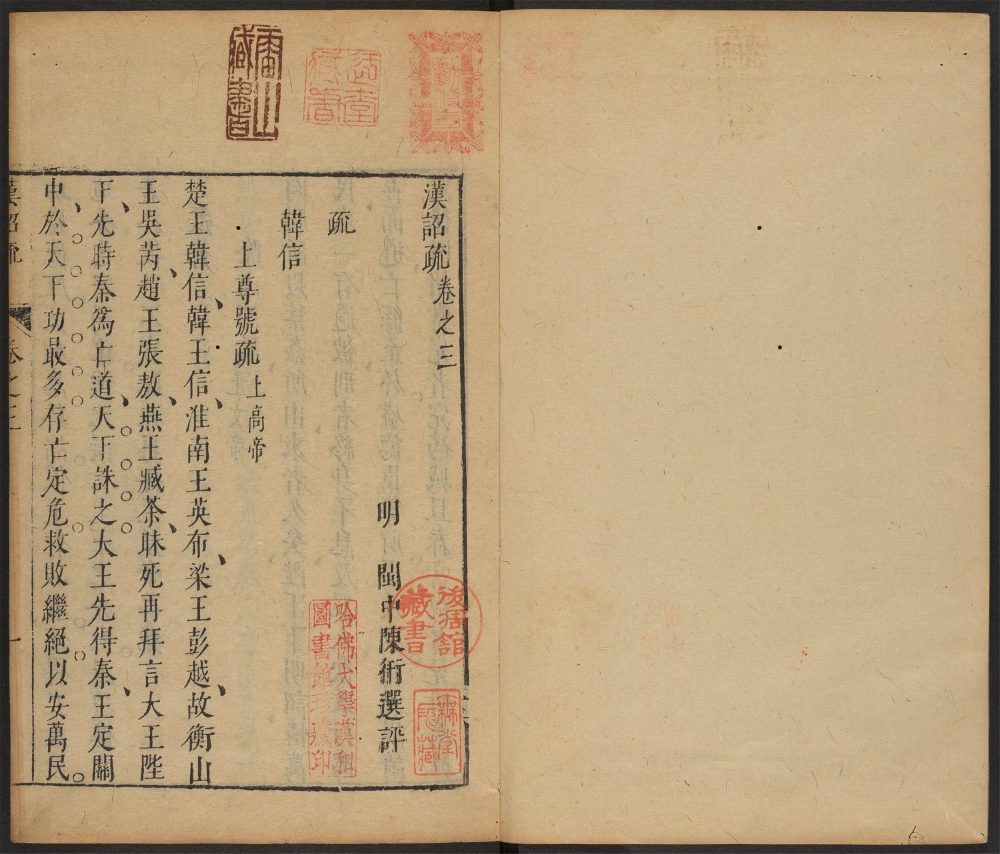 漢詔疏卷之三
明 閩中陳衎選評
疏
韓信
上尊號疏 上高帝
楚王韓信韓王信淮南王英布梁王彭越故衡山
王吳芮趙王張敖燕王臧荼昧死再拜言大王陛
下先時秦爲亡道天下誅之大王先得秦王定關
中於天下功最多存亡定危救敗繼絕以安萬民
漢詔疏 卷之三 一
藏書
哈佛大學漢和
圖書館珍藏印
藏書
藏書